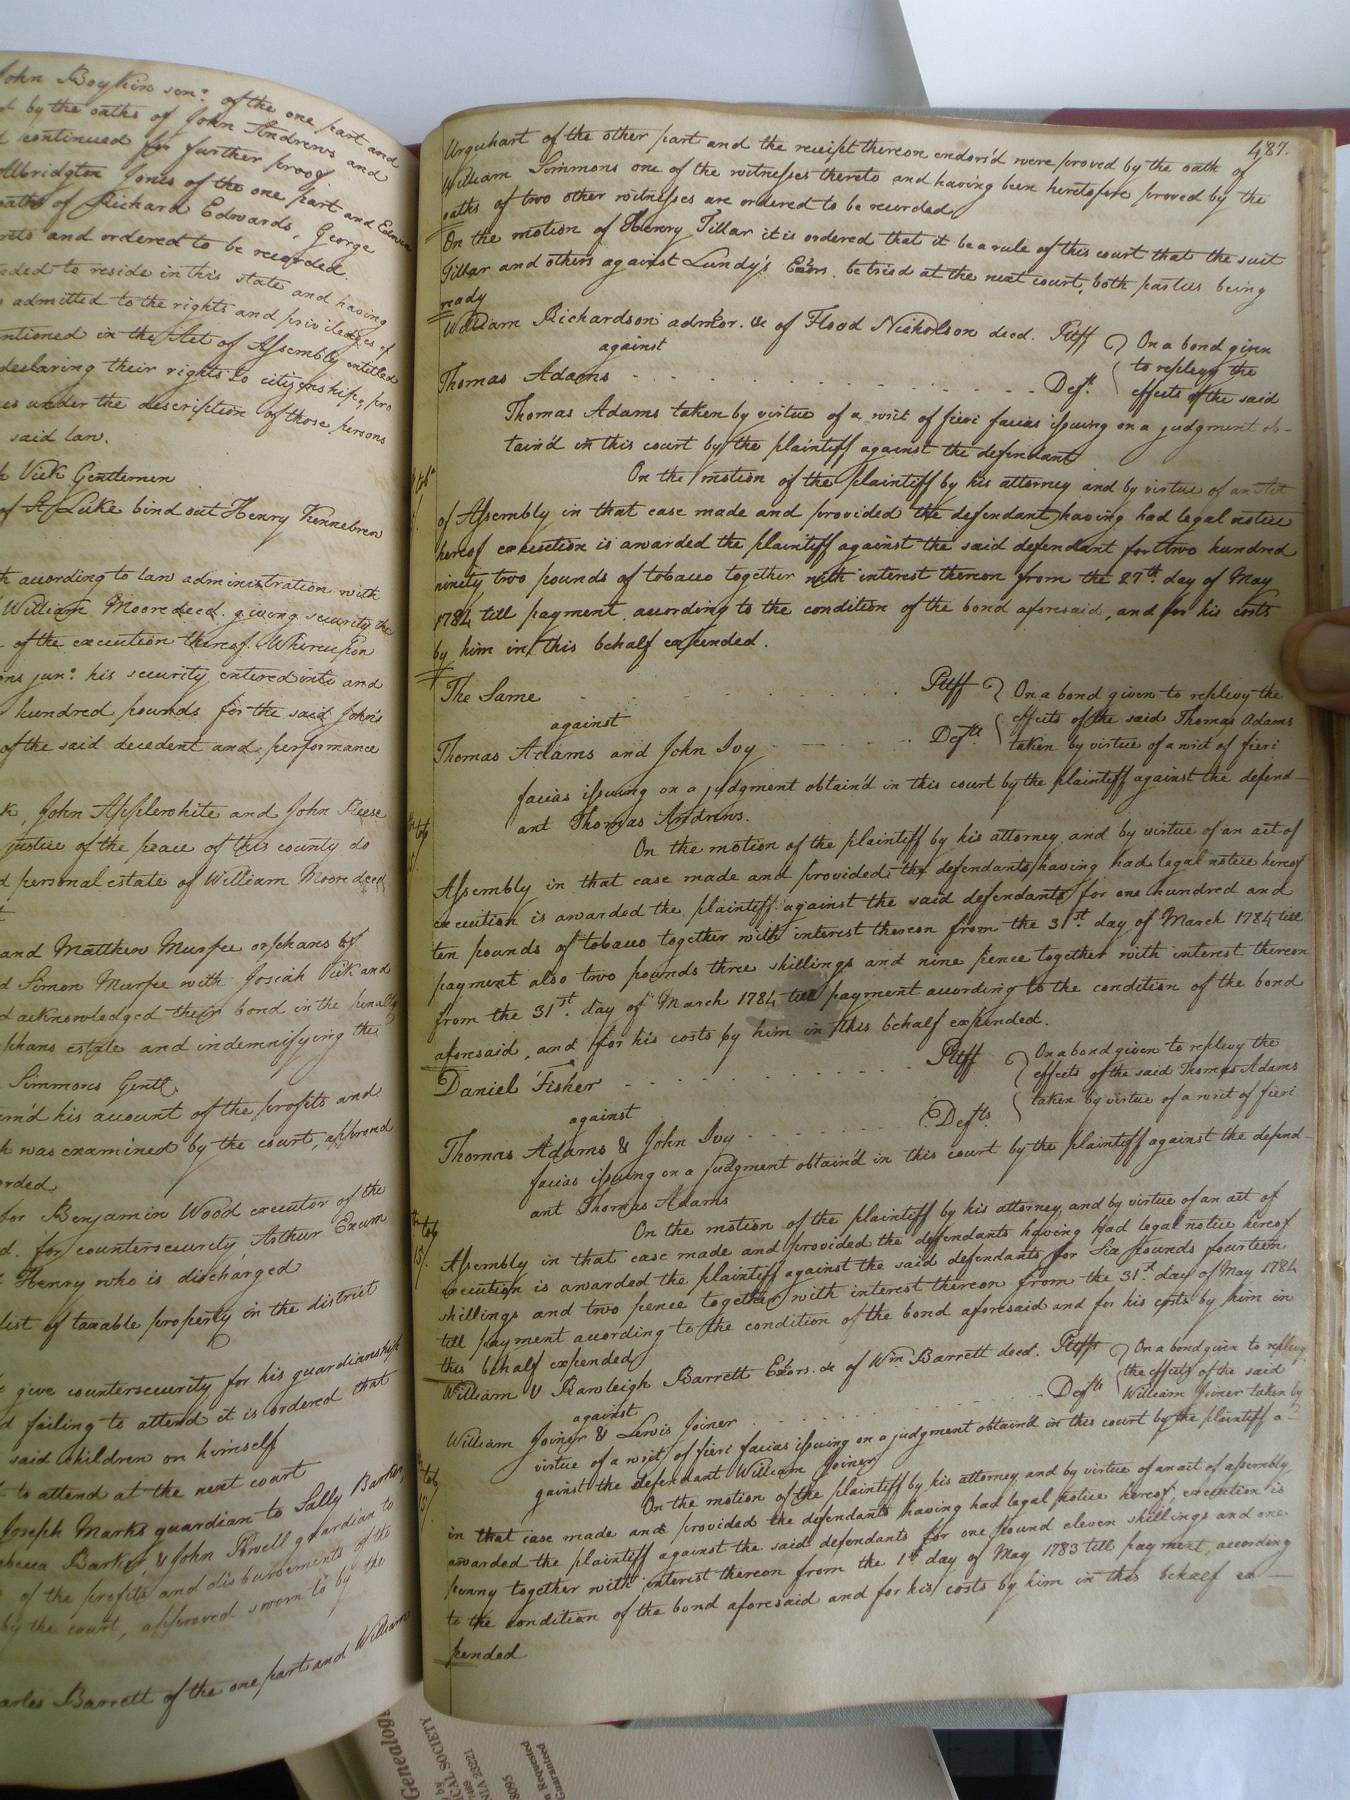 John Boykin senr. of the one part and
by the oaths of John Andrews and
continued for further proof.
Albridgton Jones of the one part and Edwin
oaths of Richard Edwards, George
and ordered to be recorded.
to reside in this state and having
admitted to the rights and priviledges of
mentioned in the Act of Assembly entitled
declaring their rights to citizenship, pro
under the description of those persons
said law.
Vick Gentlemen
of St Luke bind out Henry Kennebrew
according to law administration with
William Moore deced. giving security the
of the execution thereof. Whereupon
junr. his security entered into and
hundred pounds for the said John's
of the said decedent and performance
John Applewhite and John Reese
justice of the peace of this county do
personal estate of William Moore deced
and Matthew Murfee orphans of
Simon Murfee with Josiah Vick and
acknowledged their bond in the penalty
orphans estate and indemnifying the
Simmons Gentl.
his account of the profits and
was examined by the court, approved
for Benjamin Wood executor of the
for countersecurity, Arthur Exum
Henry who is discharged
list of taxable property in the district
give countersecurity for his guardianship
failing to attend it is ordered that
said children on himself
to attend at the next court
Joseph Marks guardian to Sally Barker,
Rebecca Barker, & John Powell guardian to
of the profits and disbursements of the
by the court, approved sworn to by the
Charles Barrett of the one part and William
487.
Urquhart of the other part and the receipt thereon endors'd were proved by the oath of
William Simmons one of the witnesses thereto and having been heretofore proved by the
oaths of two other witnesses are ordered to be recorded
On the motion of Henry Tillar it is ordered that it be a rule of this court that the suit
Tillar and others against Lundy's Exors. be tried at the next court, both parties being
ready
William Richardson admor. &c of Flood Nicholson deced. Pltff
against
Thomas Adams Deft.
On a bond given
to replevy the
effects of the said
Thomas Adams taken by virtue of a writ of fieri facias issuing on a judgment ob-
tain'd in this court by the plaintiff against the defendant
On the motion of the plaintiff by his attorney and by virtue of an Act
of Assembly in that case made and provided the defendant having had legal notice
hereof execution is awarded the plaintiff against the said defendant for two hundred
ninety two pounds of tobacco together with interest thereon from the 27th. day of May
1784 till payment according to the condition of the bond aforesaid, and for his costs
by him in this behalf expended.
The Same Pltff
against
Thomas Adams and John Ivy Defts.
On a bond given to replevy the
effects of the said Thomas Adams
taken by virtue of a writ of fieri
facias issuing on a judgment obtain'd in this court by the plaintiff against the defend-
ant Thomas Andrews.
On the motion of the plaintiff by his attorney and by virtue of an act of
Assembly in that case made and provided the defendants having had legal notice hereof
execution is awarded the plaintiff against the said defendants for one hundred and
ten pounds of tobacco together with interest thereon from the 31st. day of March 1784 till
payment also two pounds three shillings and nine pence together with interest thereon
from the 31st. day of March 1784 till payment according to the condition of the bond
aforesaid, and for his costs by him in this behalf expended.
Daniel Fisher Pltff
against
Thomas Adams & John Ivy Defts.
On a bond given to replevy the
effects of the said Thomas Adams
taken by virtue of a writ of fieri
facias issuing on a judgment obtain'd in this court by the plaintiff against the defend-
ant Thomas Adams
On the motion of the plaintiff by his attorney, and by virtue of an act of
Assembly in that case made and provided the defendants having had legal notice hereof
execution is awarded the plaintiff against the said defendants for Six pounds fourteen
shillings and two pence together with interest thereon from the 31st day of May 1784
till payment according to the condition of the bond aforesaid and for his costs by him in
this behalf expended
William & Rawleigh Barrett Exors. &c of Wm Barrett deced. Pltffs
against
William Joiner & Lewis Joiner Defts
On a bond given to replevy
the effects of the said
William Joiner taken by
virtue of a writ of fieri facias issuing on a judgment obtain'd in this court by the plaintiff a-
gainst the defendant William Joiner
On the motion of the plaintiff by his attorney and by virtue of an act of assembly
in that case made and provided the defendants having had legal notice hereof, execution is
awarded the plaintiff against the said defendants for one pound eleven shillings and one
penny together with interest thereon from the 1st day of May 1783 till payment, according
to the condition of the bond aforesaid and for his costs by him in this behalf ex-
pended
Genealog
CAL SOCIETY
23221
8095
n Requested
Guaranteed